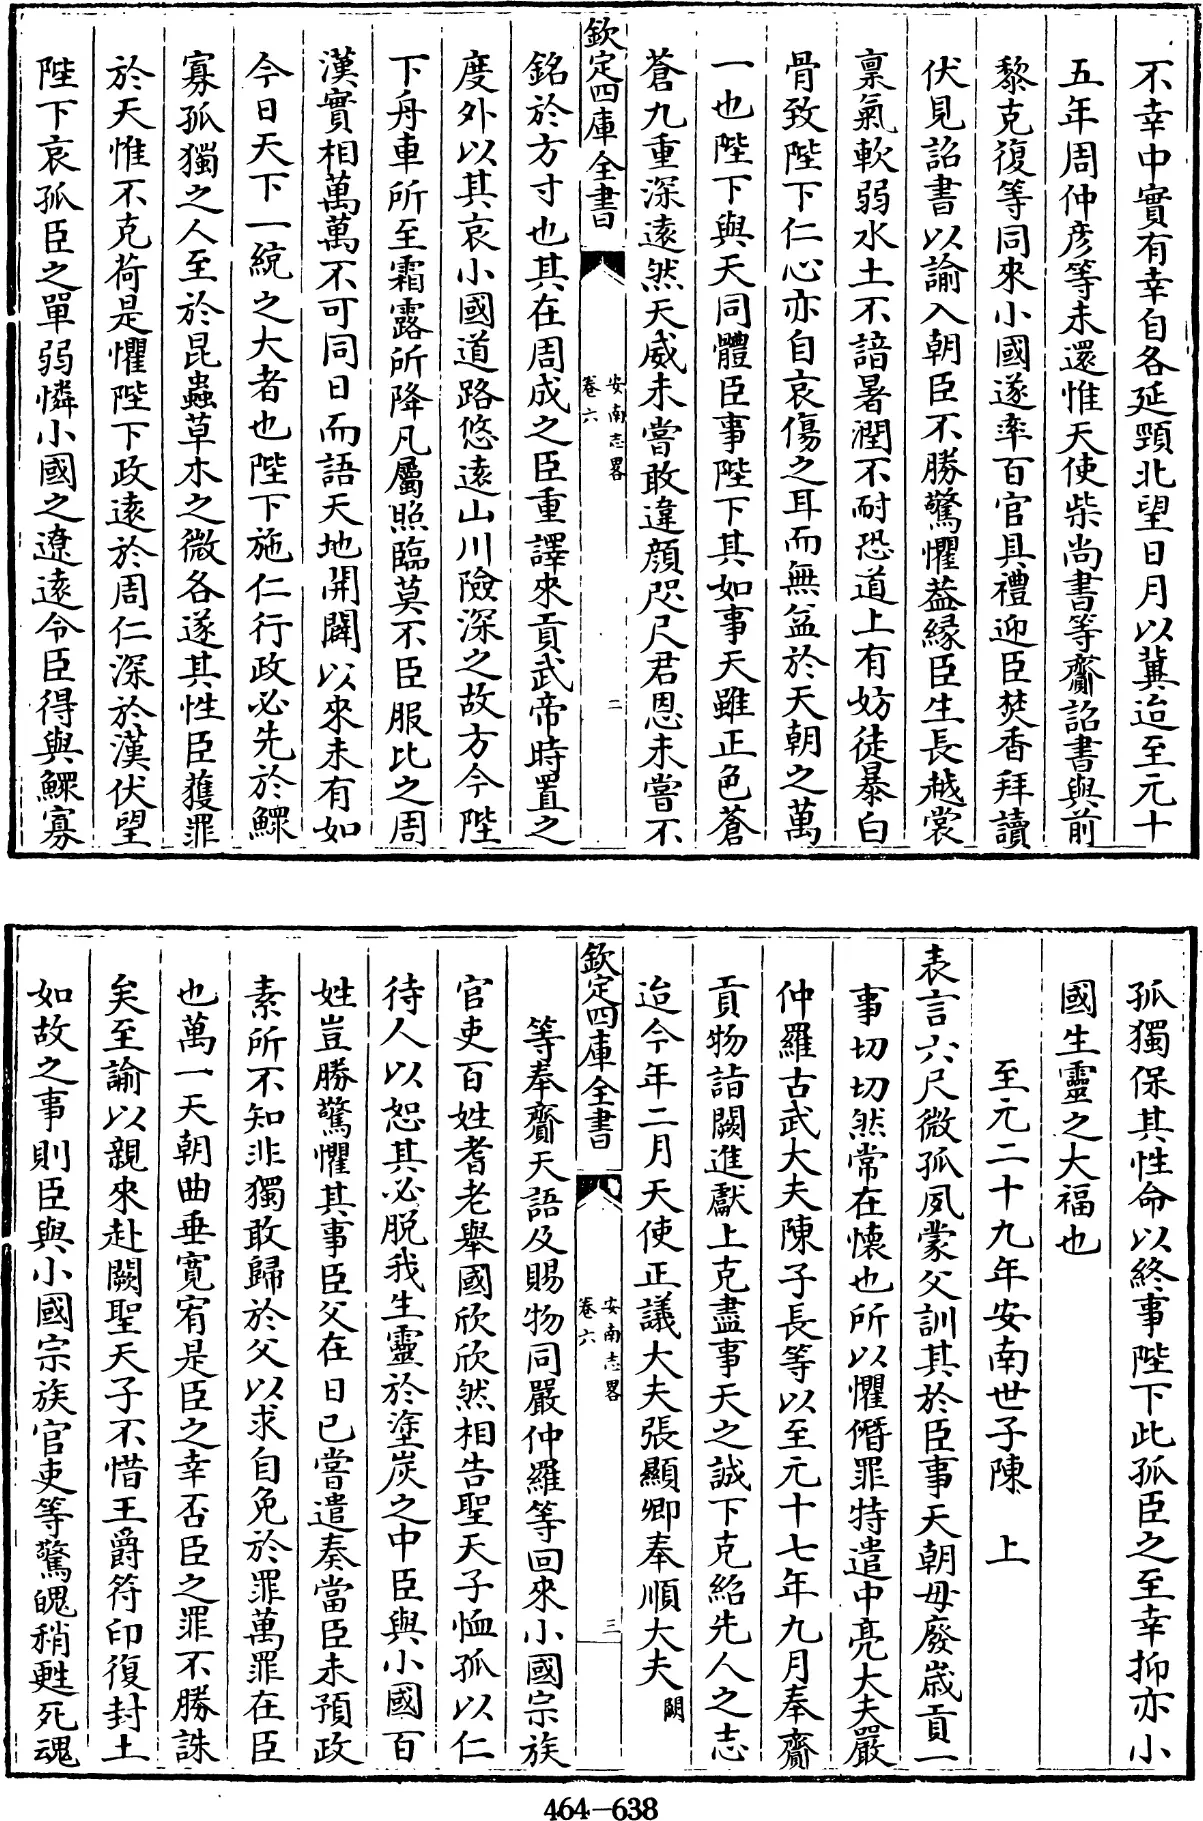 不幸中實有幸自各延頸北望日月以冀迨至元十
五年周仲彦等未還惟天使柴尚書等齎詔書與前
黎克復等同來小國遂率百官具禮迎臣焚香拜讀
伏見詔書以諭入朝臣不勝驚懼葢縁臣生長越裳
禀氣軟弱水土不諳暑潤不耐恐道上有妨徒暴白
骨致陛下仁心亦自哀傷之耳而無益於天朝之萬
一也陛下與天同體臣事陛下其如事天雖正色蒼
蒼九重深逺然天威未嘗敢違顔咫尺君恩未嘗不
欽定四庫全書
安南志畧
卷六
二
銘於方寸也其在周成之臣重譯來貢武帝時置之
度外以其哀小國道路悠逺山川險深之故方今陛
下舟車所至霜露所降凡屬照臨莫不臣服比之周
漢實相萬萬不可同日而語天地開闢以來未有如
今日天下一統之大者也陛下施仁行政必先於鰥
寡孤獨之人至於昆蟲草木之微各遂其性臣獲罪
於天惟不克荷是懼陛下政逺於周仁深於漢伏望
陛下哀孤臣之單弱憐小國之遼逺令臣得與鰥寡
孤獨保其性命以終事陛下此孤臣之至幸抑亦小
國生靈之大福也
至元二十九年安南世子陳 上
表言六尺微孤夙蒙父訓其於臣事天朝毋廢嵗貢一
事切切然常在懐也所以懼僭罪特遣中亮大夫嚴
仲羅古武大夫陳子長等以至元十七年九月奉齎
貢物詣闕進獻上克盡事天之誠下克紹先人之志
迨今年二月天使正議大夫張顯卿奉順大夫闕
欽定四庫全書
安南志畧
卷六
三
等奉齎天語及賜物同嚴仲羅等回來小國宗族
官吏百姓耆老舉國欣欣然相告聖天子恤孤以仁
待人以恕其必脱我生靈於塗炭之中臣與小國百
姓豈勝驚懼其事臣父在日已嘗遣奏當臣未預政
素所不知非獨敢歸於父以求自免於罪萬罪在臣
也萬一天朝曲垂寛宥是臣之幸否臣之罪不勝誅
矣至諭以親來赴闕聖天子不惜王爵符印復封土
如故之事則臣與小國宗族官吏等驚魄稍甦死魂
464-638